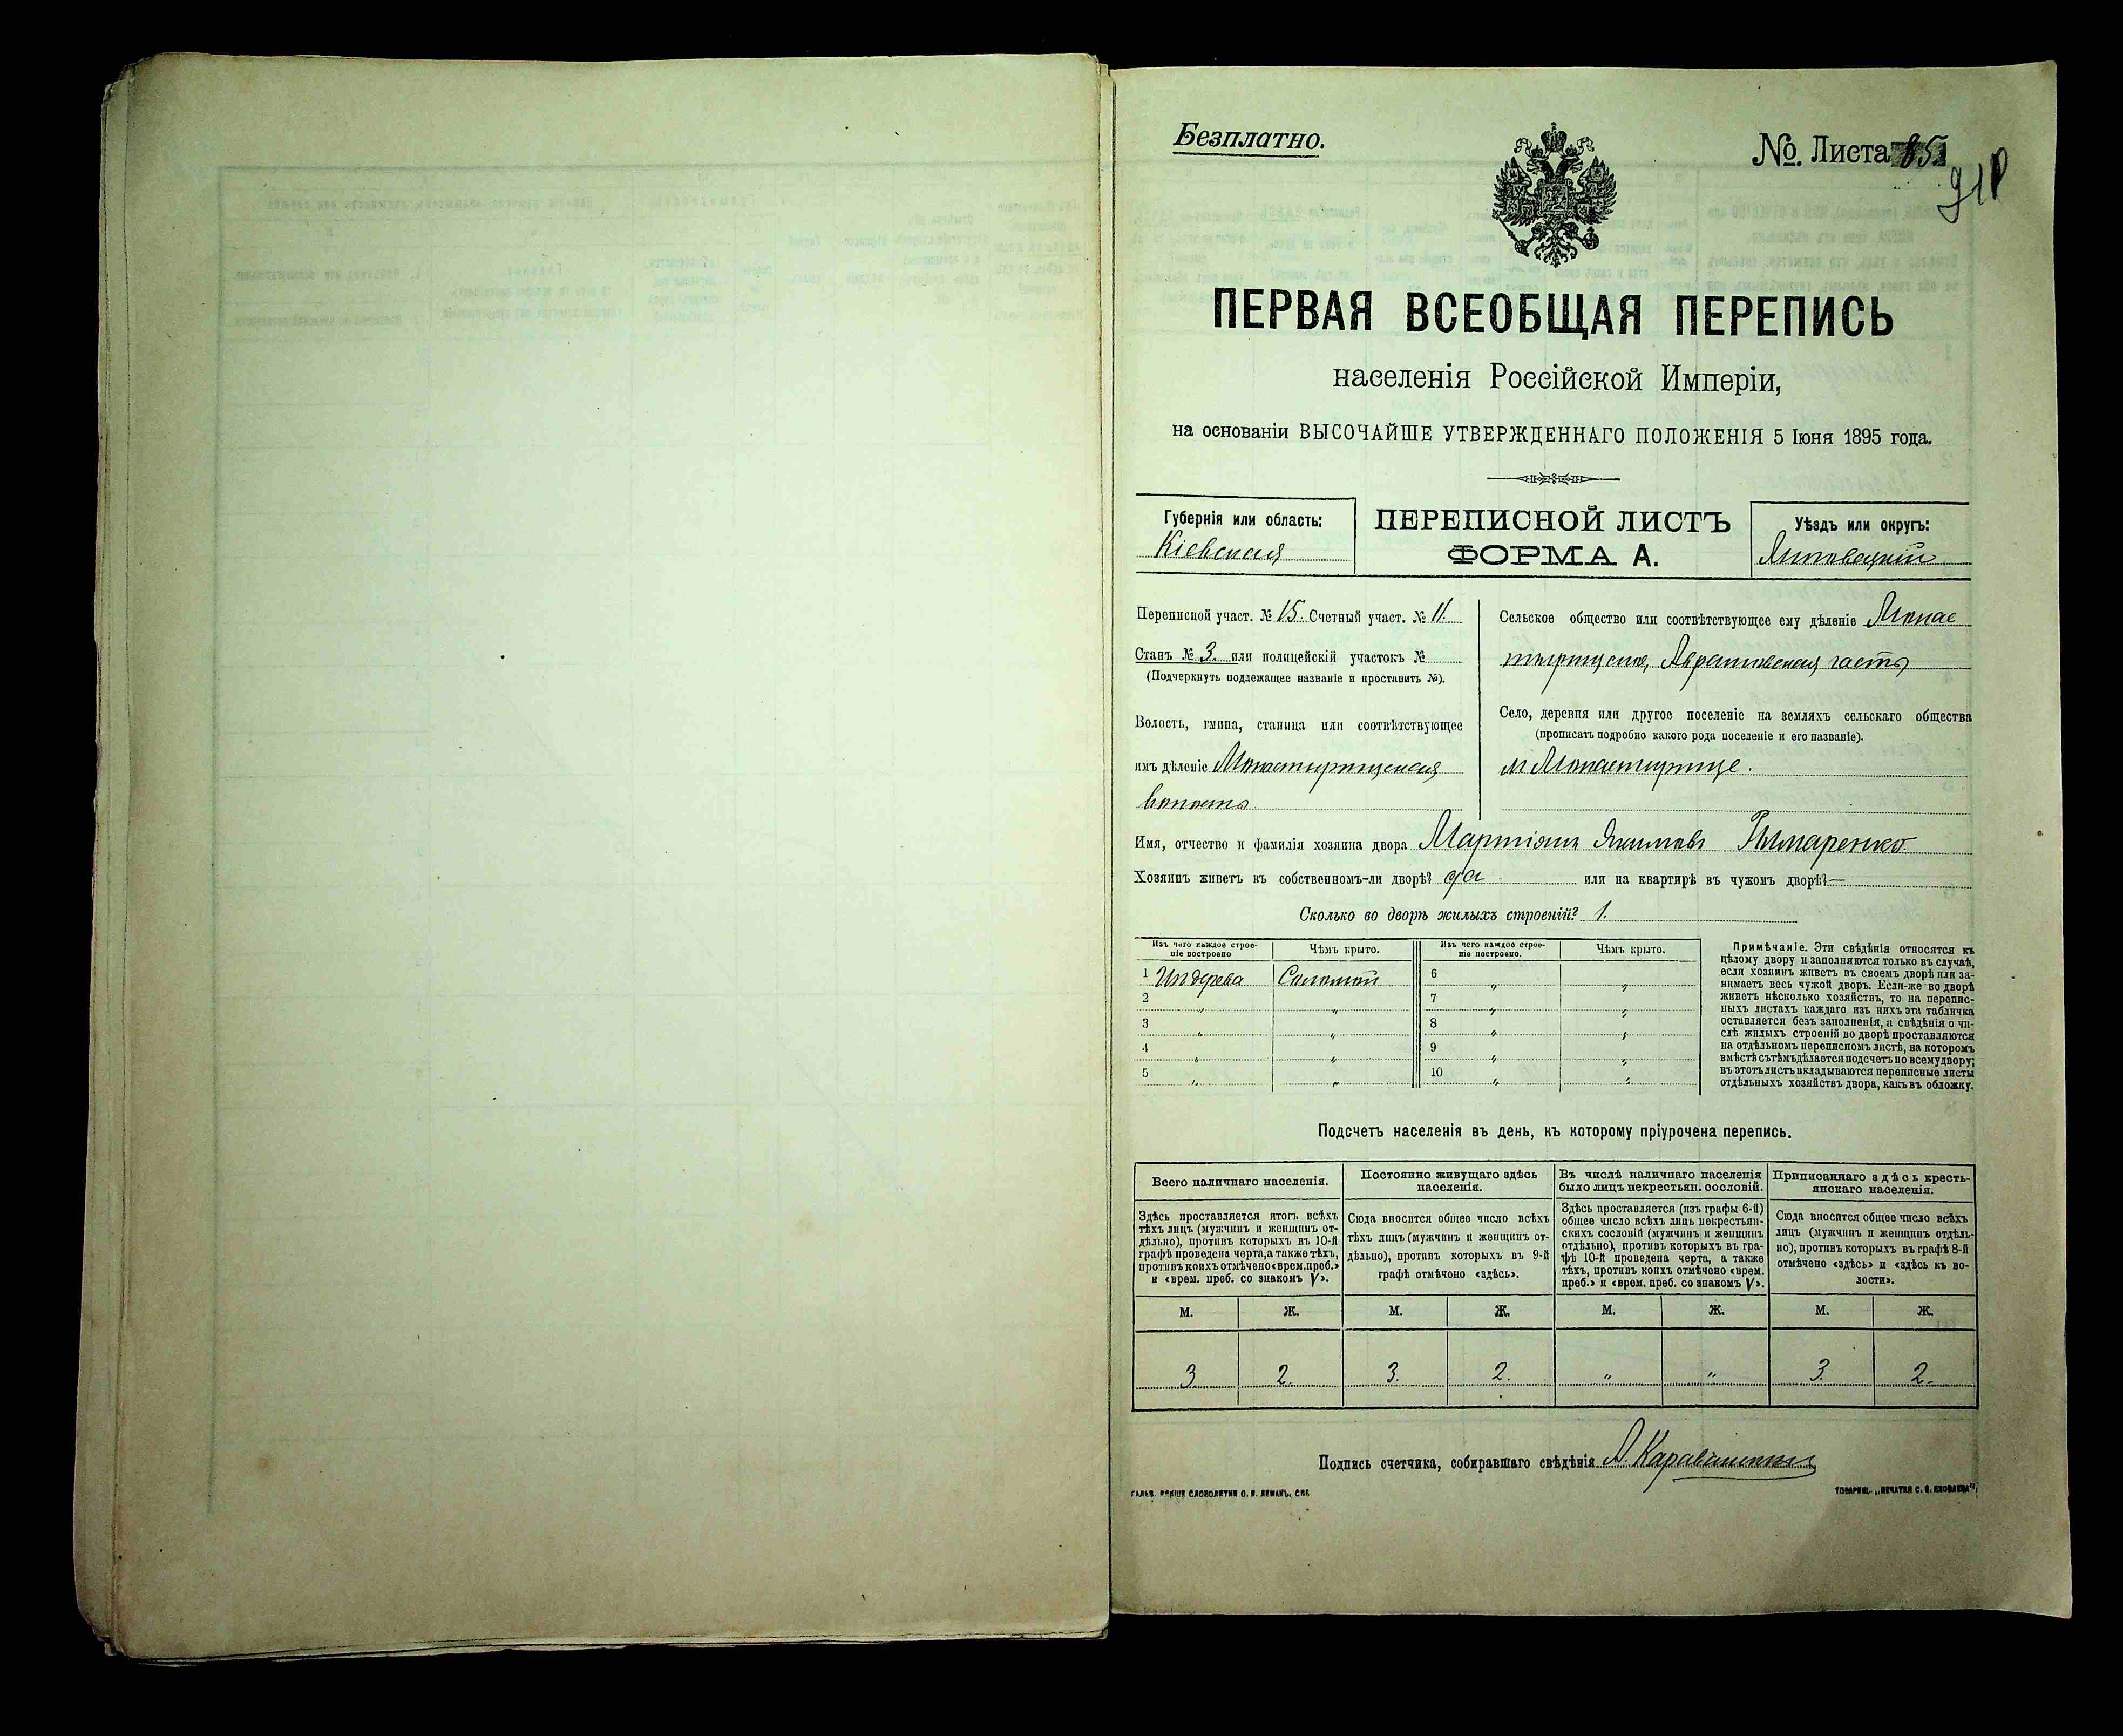 Безплатно.
№ Листа 85
ПЕРВАЯ ВСЕОБЩАЯ ПЕРЕПИСЬ
населенія Россійской Имперіи,
на основаніи ВЫСОЧАЙШЕ УТВЕРЖДЕННАГО ПОЛОЖЕНІЯ 5 Іюня 1895 года.
Губернія или область:
Кіевская
ПЕРЕПИСНОЙ ЛИСТЪ
ФОРМА А.
Уѣздъ или округъ:
Липовецкій
Переписной участ. № 15. Счетный участ. № 11.
Станъ № 3. или полицейскій участокъ №
(Подчеркнуть подлежащее названіе и проставить №).
Волость, гмина, станица или соотвѣтствующее
имъ дѣленіе Монастырищенская
волость.
Сельское общество или соотвѣтствующее ему дѣленіе Монас
тырищское, часть
Село, деревня или другое поселеніе на земляхъ сельскаго общества
(прописать подробно какого рода поселеніе и его названіе).
м Монастырище.
Имя, отчество и фамилія хозяина двора Мартіянъ Якимовъ Гымаренко
Хозяинъ живетъ въ собственномъ-ли дворѣ? да или на квартирѣ въ чужомъ дворѣ? —
Сколько во дворѣ жилыхъ строеній? 1.
Изъ чего каждое строе-
ніе построено
Чѣмъ крыто.
Изъ чего каждое строе-
ніе построено.
Чѣмъ крыто.
1 Изъ дерева Соломой 6 " "
2 " " 7 " "
3 " " 8 " "
4 " " 9 " "
5 " " 10 " "
Примѣчаніе. Эти свѣдѣнія относятся къ
цѣлому двору и заполняются только въ случаѣ,
если хозяинъ живетъ въ своемъ дворѣ или за-
нимаетъ весь чужой дворъ. Если-же во дворѣ
живетъ нѣсколько хозяйствъ, то на перепис-
ныхъ листахъ каждаго изъ нихъ эта табличка
оставляется безъ заполненія, а свѣдѣнія о чи-
слѣ жилыхъ строеній во дворѣ проставляются
на отдѣльномъ переписномъ листѣ, на которомъ
вмѣстѣ съ тѣмъ дѣлается подсчетъ по всему двору;
въ этотъ листъ вкладываются переписные листы
отдѣльныхъ хозяйствъ двора, какъ въ обложку.
Подсчетъ населенія въ день, къ которому пріурочена перепись.
Всего наличнаго населенія.
Постоянно живущаго здѣсь
населенія.
Въ числѣ наличнаго населенія
было лицъ некрестьян. сословій.
Приписаннаго здѣсь кресть-
янскаго населенія.
Здѣсь проставляется итогъ всѣхъ
тѣхъ лицъ (мужчинъ и женщинъ от-
дѣльно), противъ которыхъ въ 10-й
графѣ проведена черта, а также тѣхъ,
противъ коихъ отмѣчено «врем. преб.»
и «врем. преб. со знакомъ V».
Сюда вносится общее число всѣхъ
тѣхъ лицъ (мужчинъ и женщинъ от-
дѣльно), противъ которыхъ въ 9-й
графѣ отмѣчено «здѣсь».
Здѣсь проставляется (изъ графы 6-й)
общее число всѣхъ лицъ некрестьян-
скихъ сословій (мужчинъ и женщинъ
отдѣльно), противъ которыхъ въ гра-
фѣ 10-й проведена черта, а также
тѣхъ, противъ коихъ отмѣчено «врем.
преб.» и «врем. преб. со знакомъ V».
Сюда вносится общее число всѣхъ
лицъ (мужчинъ и женщинъ отдѣль-
но), противъ которыхъ въ графѣ 8-й
отмѣчено «здѣсь» и «здѣсь къ во-
лости».
М. Ж. М. Ж. М. Ж. М. Ж.
3 2. 3. 2. " " 3. 2.
Подпись счетчика, собиравшаго свѣдѣнія
ТОВАРИЩ. „ПЕЧАТНЯ С. П. ЯКОВЛЕВА"